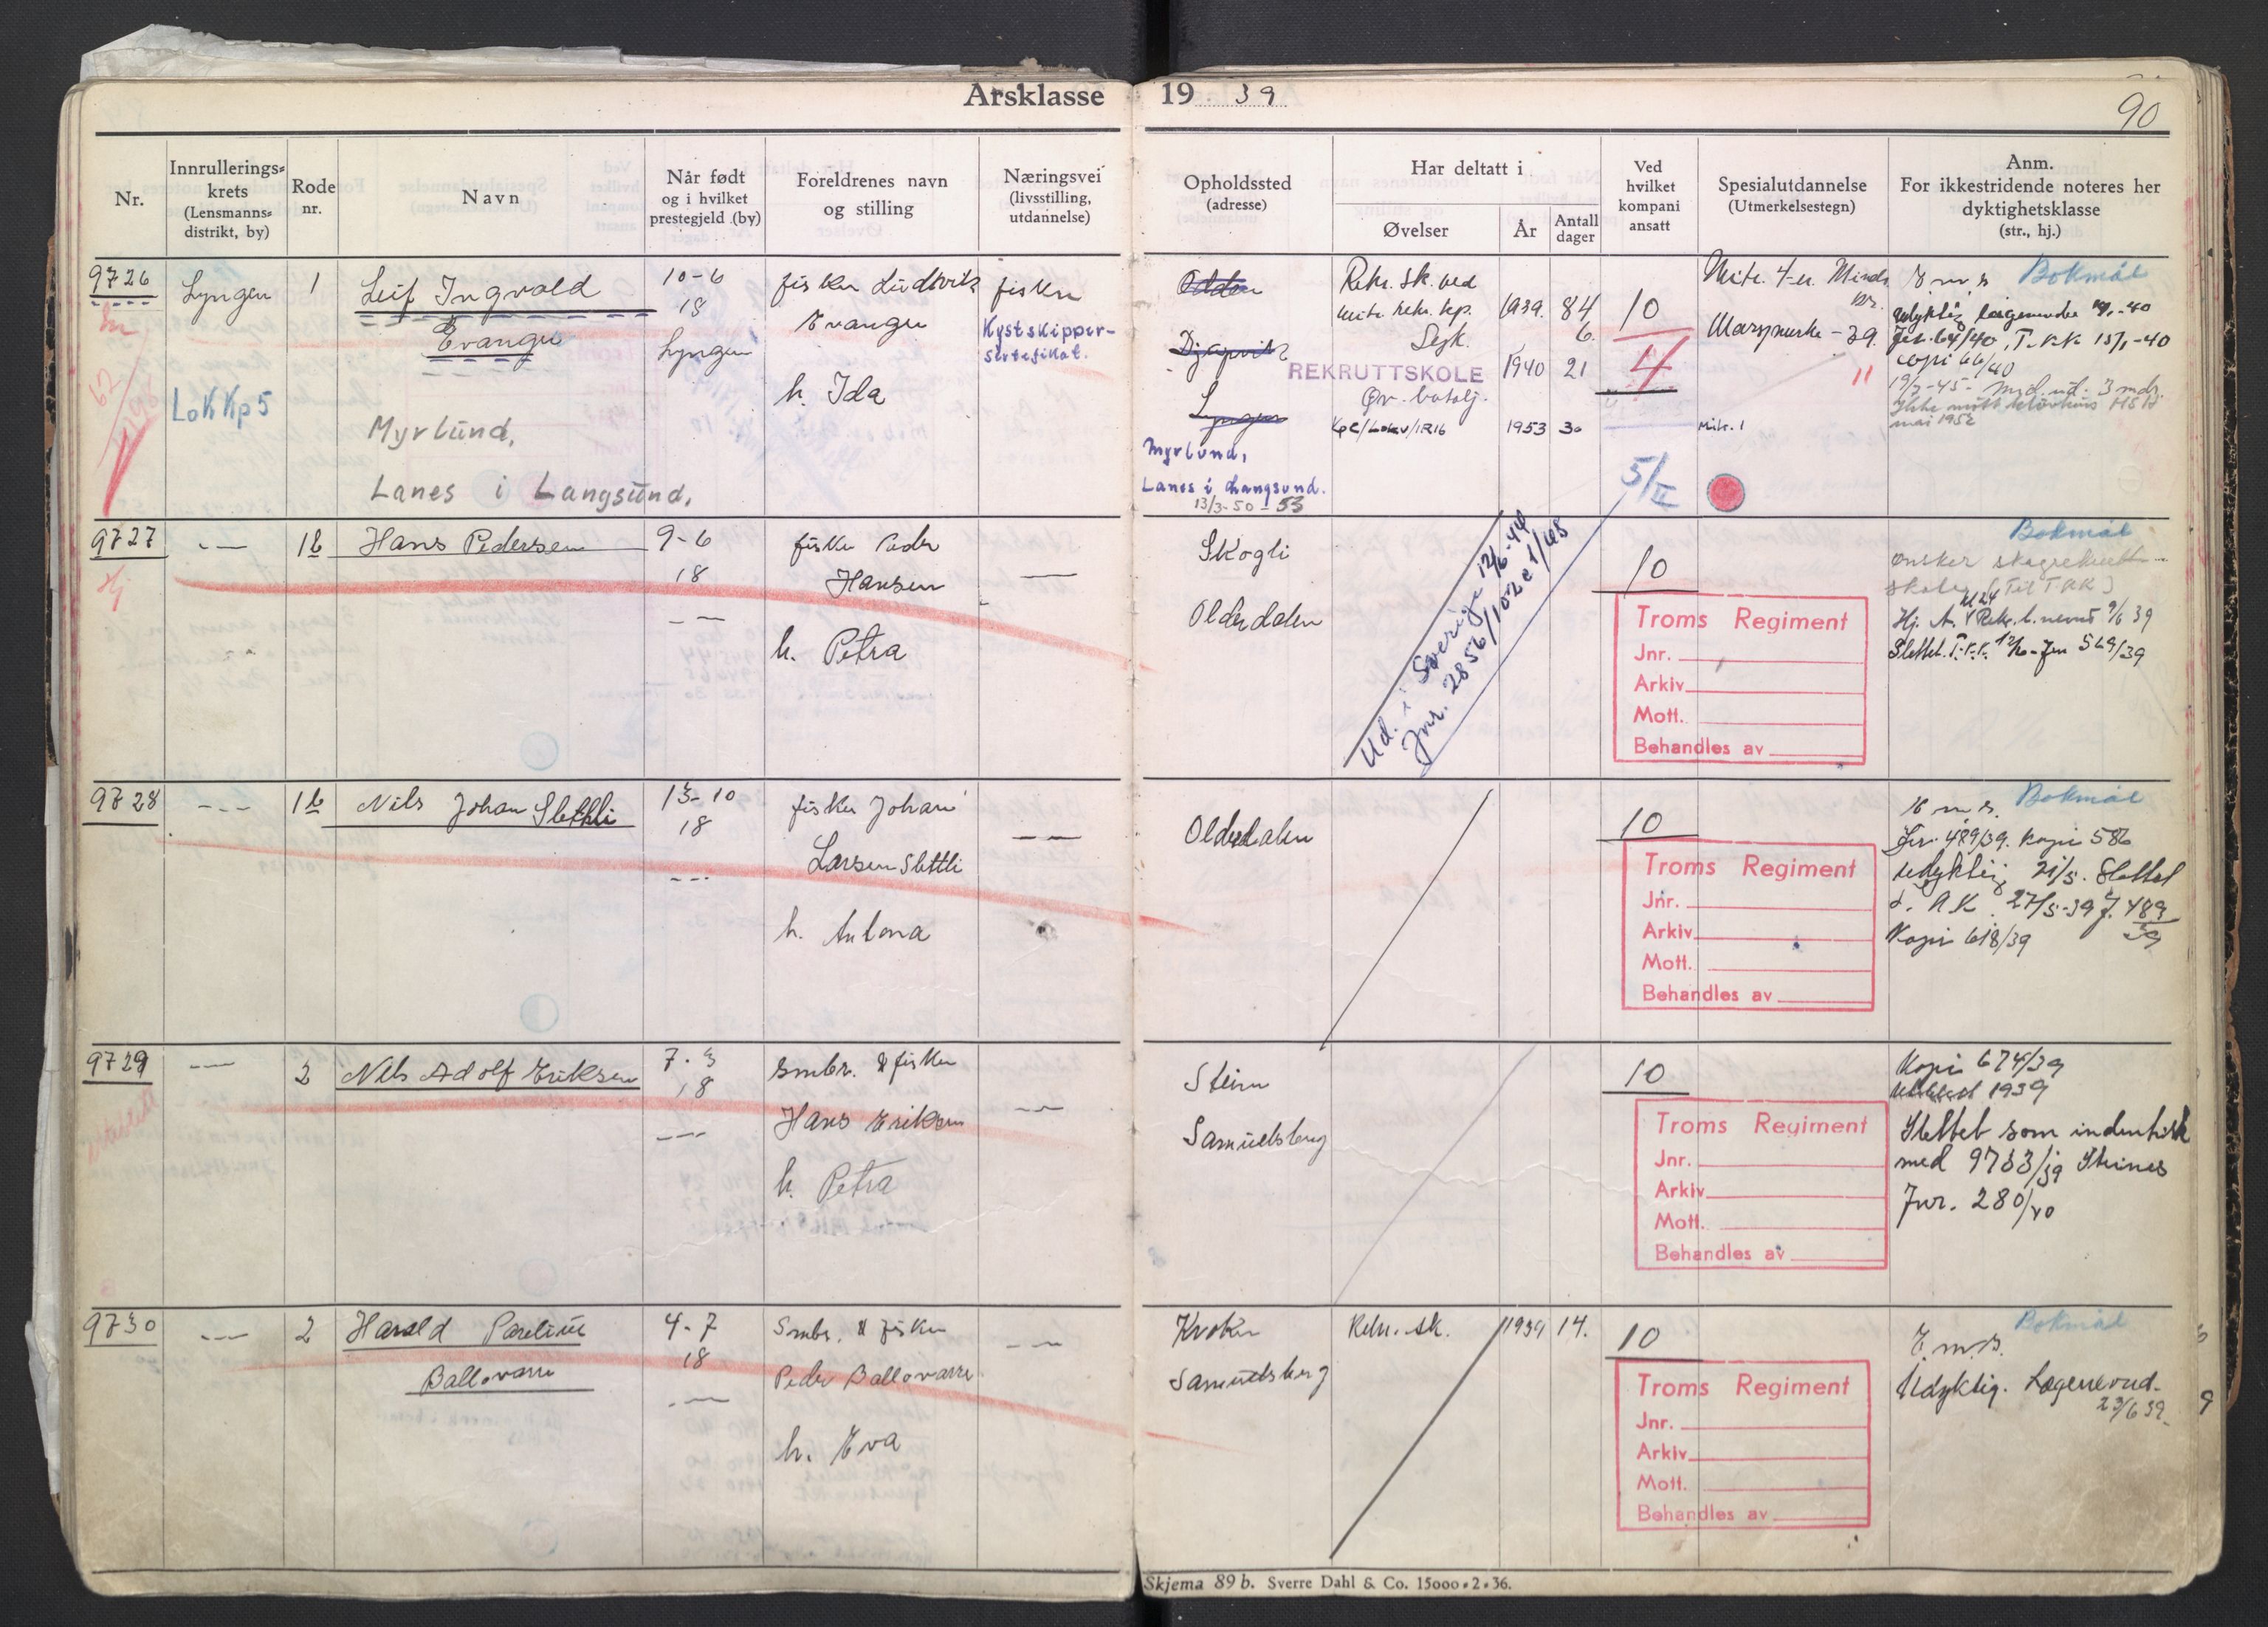 Årsklasse 19 39
90
Nr.
Innrullerings-
krets
(Lensmanns-
distrikt, by)
Rode
nr.
Navn
Når født
og i hvilket
prestegjeld (by)
Foreldrenes navn
og stilling
Næringsvei
(livsstilling,
utdannelse)
Opholdssted
(adresse)
Har deltatt i
Øvelser
År
Antall
dager
Ved
hvilket
kompani
ansatt
Spesialutdannelse
(Utmerkelsestegn)
Anm.
For ikkestridende noteres her
dyktighetsklasse
(str., hj.)
9726
Lyngen
LoKKp5
1
Leif Ingvald
Evangen
Myrlund,
Lanes i Langsund,
10-6
18
Lyngen
fisker Ludvik
Evangen
h. Ida
fisker
Kystskipper-
sertefikat.
Djupvik
Lyngen
Myrlund,
Lanes i Langsund.
13/3-50-53
Rekr. sk. ved
mitr. rekr. kp. 1939. 84
Syk. 6.
REKRUTTSKOLE 1940 21
Øv. batalj.
1953 30
10
4
5/II
Marsjmerke - 39.
Mitr. 1
Bokmål
Jnr. 64/40, T.K.K. 15/1-40
kopi 66/40
mai 1952
9727
-"-
1b
Hans Pedersen
9-6
18
-"-
fisker Peder
Hansen
h. Petra
-"-
Skogli
Olderdalen
Ud. i Sverige 12/6-44
Jnr. 2856/102e1/45
10
Troms Regiment
Jnr.
Arkiv
Mott.
Behandles av
Bokmål
Ønsker
skole (Til T.KK)
Hj.
Slettet. T.K.K. 12/6- Jnr 569/39
9728
-"-
1b
Nils Johan Slettli
13-10
18
-"-
fisker Johan
Larsen Slettli
h. Antona
-"-
Olderdalen
10
Troms Regiment
Jnr.
Arkiv
Mott.
Behandles av
Bokmål
Jnr. 489/39. Kopi 586
udyktig 21/5. Slettet
27/5-39 J. 489/39
Kopi 618/39
9729
-"-
2
Nils Adolf Eriksen
7.3
18
-"-
Smbr. & fisker
Hans Eriksen
h. Petra
-"-
Samuelsberg
10
Troms Regiment
Jnr.
Arkiv
Mott.
Behandles av
Kopi 674/39
1939
Slettet som indentisk
med 9733/39 Steines
Jnr. 280/40
9730
-"-
2
Harald Parelius
Ballovarre
4-7
18
-"-
Smbr. & fisker
Peder Ballovarre
h. Eva
-"-
Kroken
Samuelsberg
Rekr. sk. 1939 14.
10
Troms Regiment
Jnr.
Arkiv
Mott.
Behandles av
Bokmål
E.m.s.
Udyktig. Lægenevnd.
23/6 39.
Skjema 89 b. Sverre Dahl & Co. 15000.2.36.